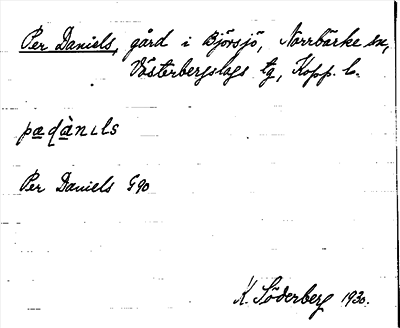 Per Daniels, gård i Björsjö, Norrbärke sn,
Västerbergslags tg, Kopp. l.
pædànɩls
Per Daniels G90
K. Söderberg 1930.